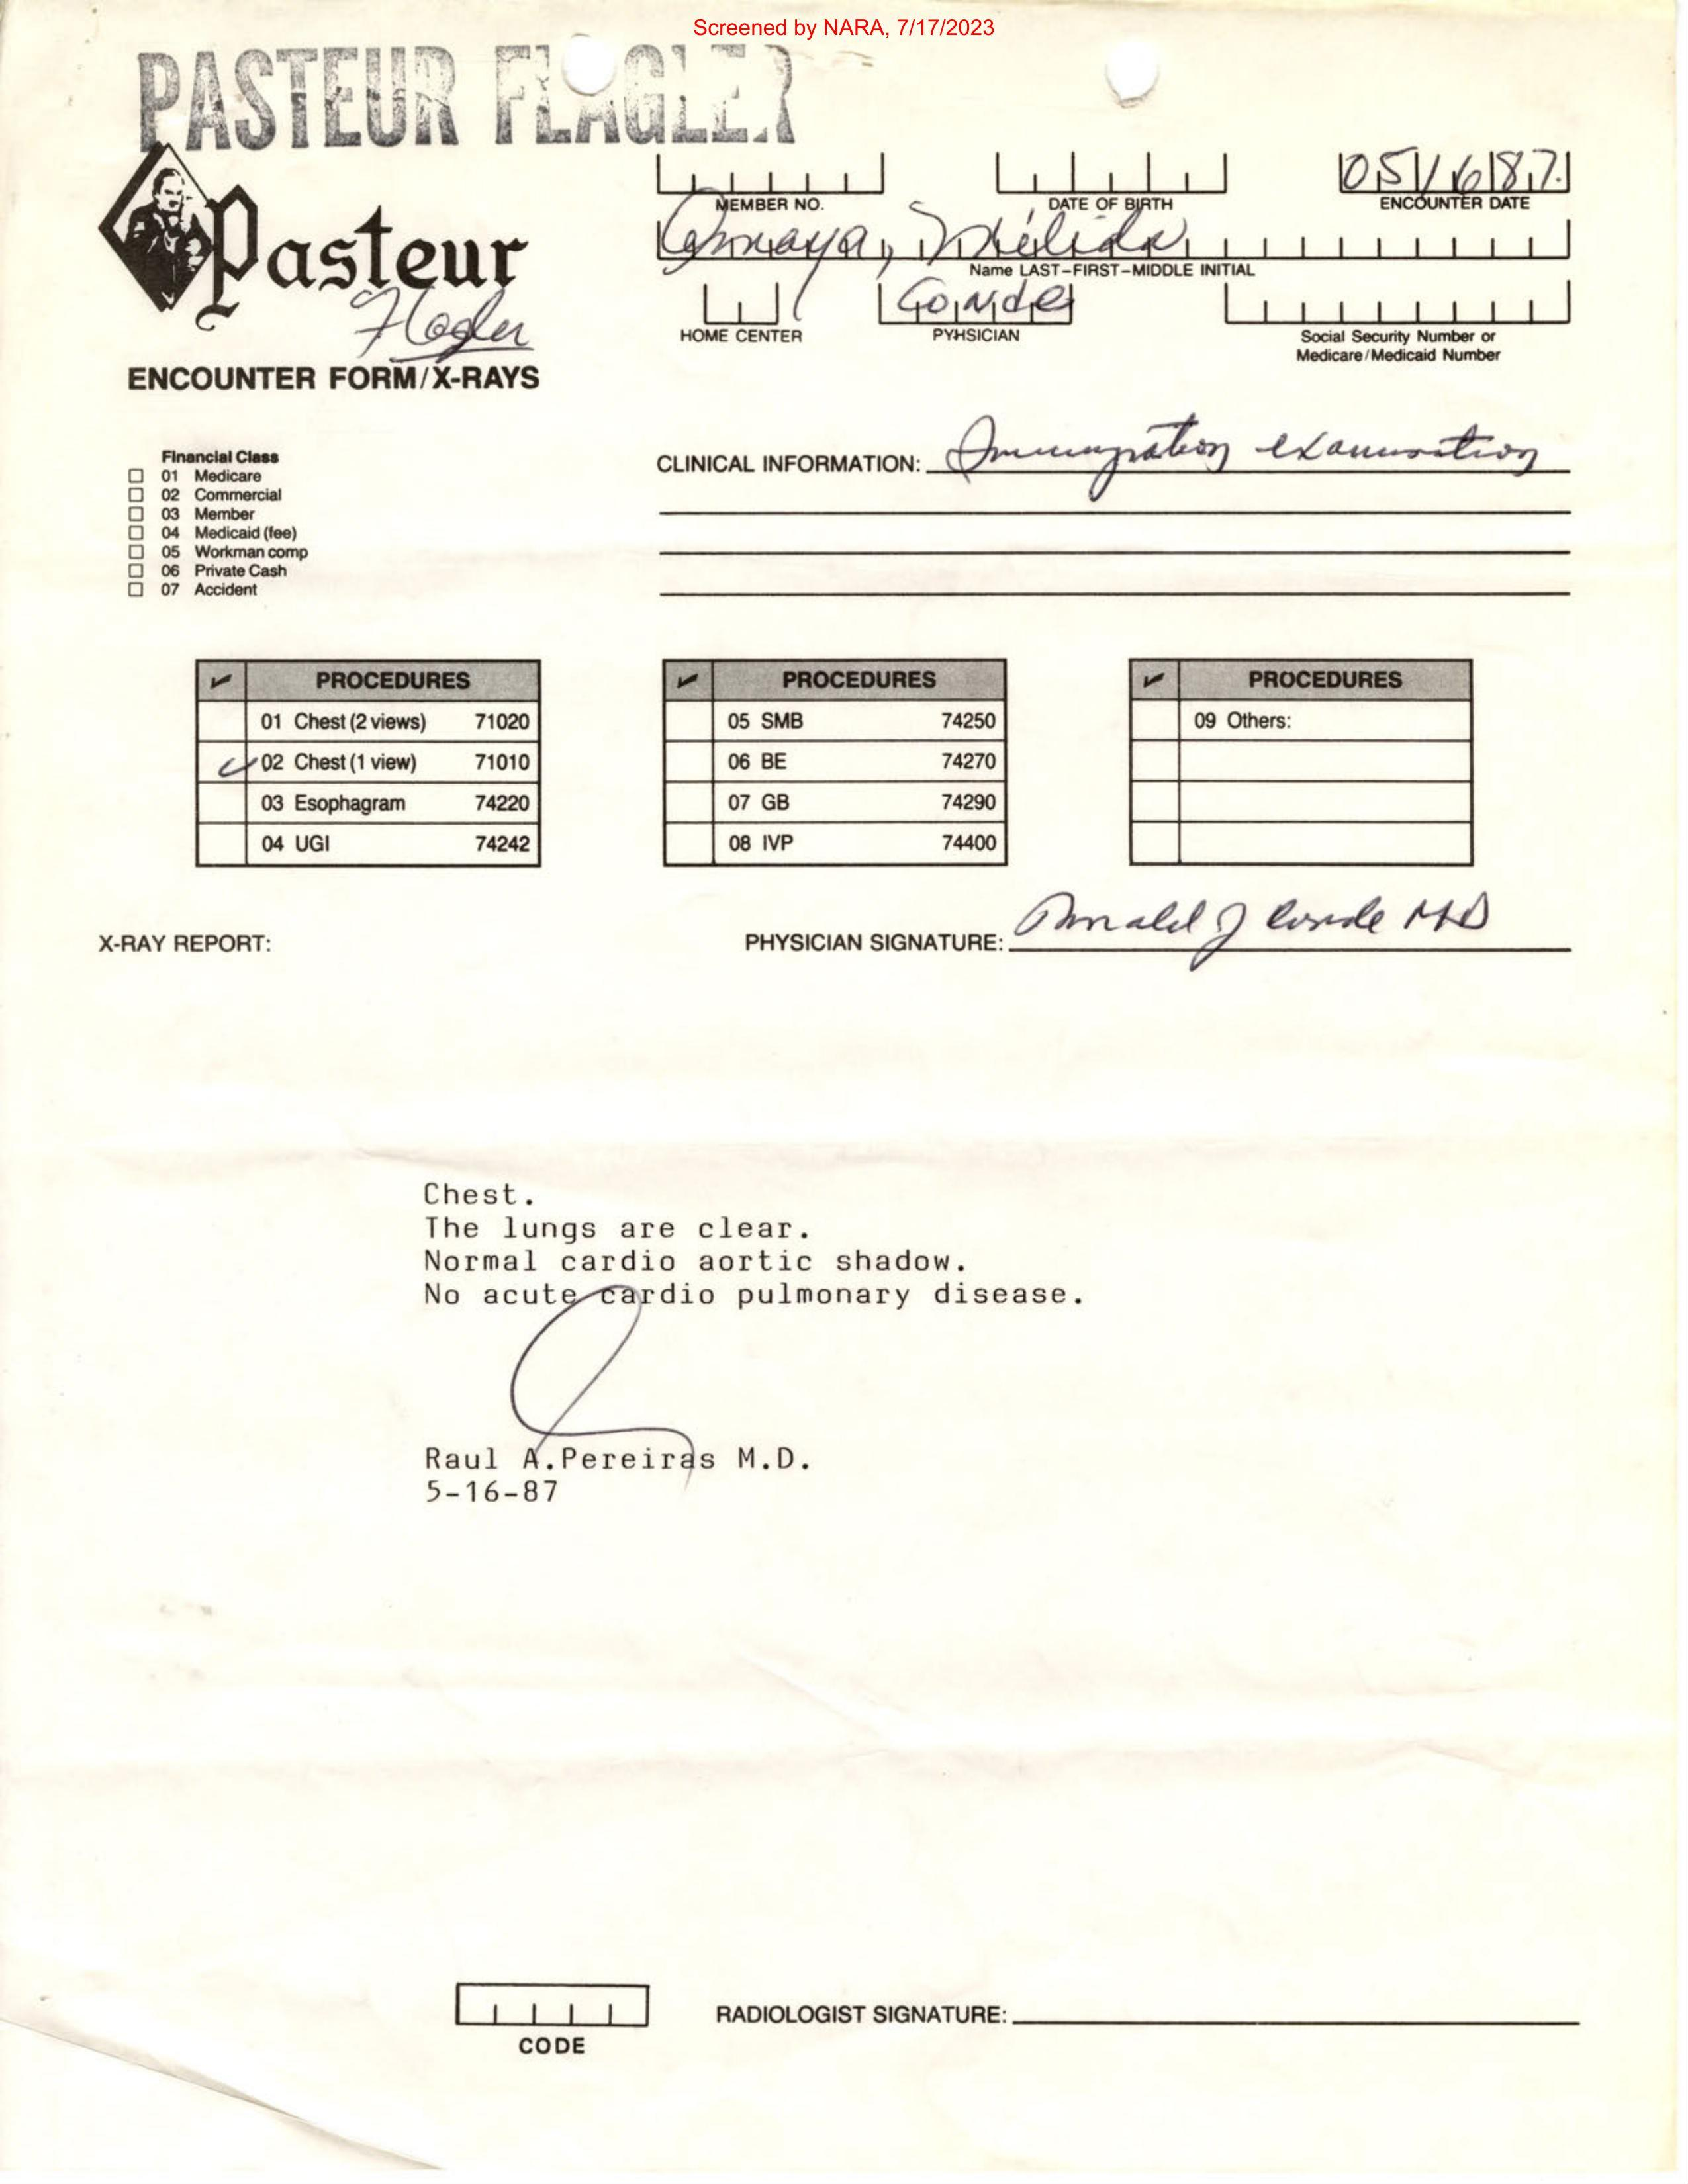 Screened by NARA, 7/17/2023
PASTEUR FLAGLER
Pasteur
Flagler
ENCOUNTER FORM/X-RAYS
051687
MEMBER NO.
DATE OF BIRTH
ENCOUNTER DATE
Name LAST-FIRST-MIDDLE INITIAL
Conde
HOME CENTER
PYHSICIAN
Social Security Number or
Medicare/Medicaid Number
Financial Class
01 Medicare
02 Commercial
03 Member
04 Medicaid (fee)
05 Workman comp
06 Private Cash
07 Accident
CLINICAL INFORMATION: Immigration examination
PROCEDURES
01 Chest (2 views) 71020
02 Chest (1 view) 71010
03 Esophagram 74220
04 UGI 74242
PROCEDURES
05 SMB 74250
06 BE 74270
07 GB 74290
08 IVP 74400
PROCEDURES
09 Others:
X-RAY REPORT:
PHYSICIAN SIGNATURE: J Conde MD
Chest.
The lungs are clear.
Normal cardio aortic shadow.
No acute cardio pulmonary disease.
Raul A.Pereiras M.D.
5-16-87
CODE
RADIOLOGIST SIGNATURE: